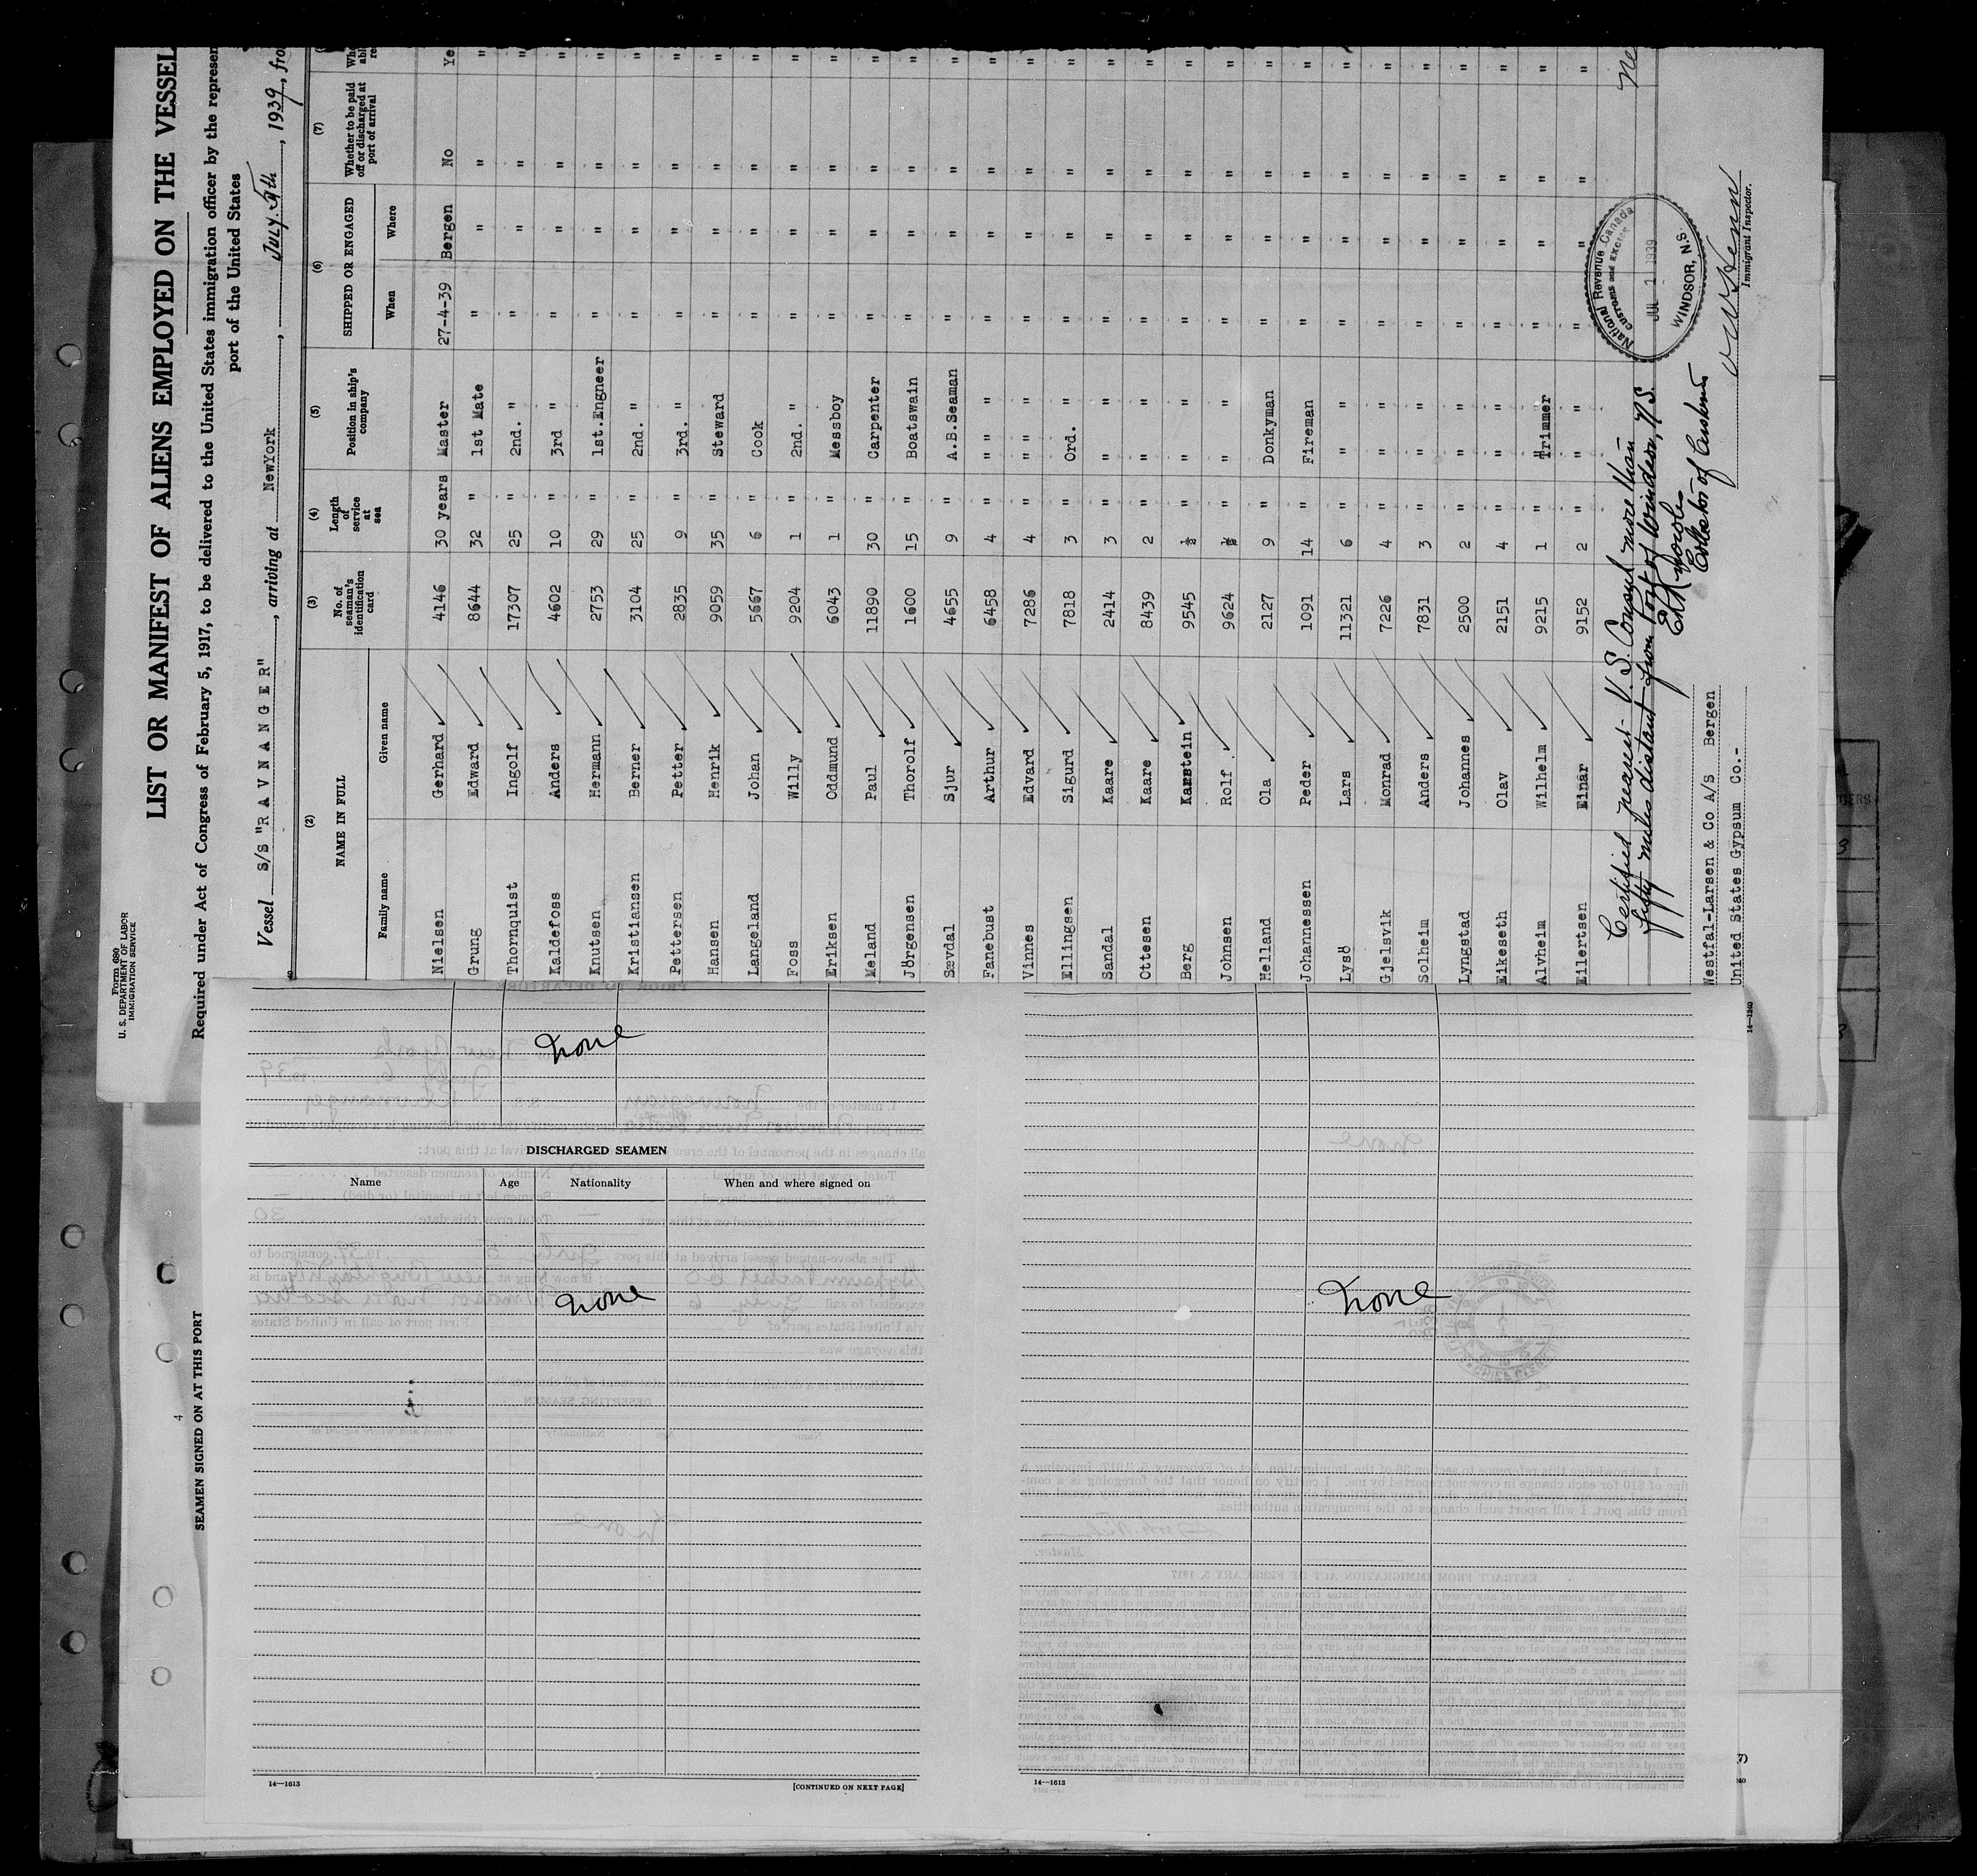 Form 680
U. S. DEPARTMENT OF LABOR
IMMIGRATION SERVICE
LIST OR MANIFEST OF ALIENS EMPLOYED ON THE VESSEL
Required under Act of Congress of February 5, 1917, to be delivered to the United States immigration officer by the represen
port of the United States
Vessel S/S "RAVNANGER", arriving at NewYork, JULY, 1939, fro
(2) (3) (4) (5) (6) (7)
NAME IN FULL
Family name Given name
No. of seaman's identification card
Length of service at sea
Position in ship's company
SHIPPED OR ENGAGED
When Where
Whether to be paid off or discharged at port of arrival
Nielsen Gerhard 4146 30 years Master 27-4-39 Bergen No Ye
Grung Edward 8644 32 " 1st Mate " " " "
Thornquist Ingolf 17307 25 " 2nd. " " " " "
Kaldefoss Anders 4602 10 " 3rd " " " " "
Knutsen Hermann 2753 29 " 1st.Engneer " " " "
Kristiansen Berner 3104 25 " 2nd. " " " " "
Pettersen Petter 2835 9 " 3rd. " " " " "
Hansen Henrik 9059 35 " Steward " " " "
Langeland Johan 5667 6 " Cook " " " "
Foss Willy 9204 1 " 2nd. " " " " "
Eriksen Oddmund 6043 1 " Messboy " " " "
Meland Paul 11890 30 " Carpenter " " " "
Jörgensen Thorolf 1600 15 " Boatswain " " " "
Sævdal Sjur 4655 9 " A.B.Seaman " " " "
Fanebust Arthur 6458 4 " " " " " " "
Vinnes Edvard 7286 4 " " " " " " "
Ellingsen Sigurd 7818 3 " Ord. " " " " "
Sandal Kaare 2414 3 " " " " " " "
Ottesen Kaare 8439 2 " " " " " " "
Berg Karstein 9545 ½ " " " " " " "
Johnsen Rolf 9624 ½ " " " " " " "
Helland Ola 2127 9 " Donkyman " " " "
Johannessen Peder 1091 14 " Fireman " " " "
Lysö Lars 11321 6 " " " " " "
Gjelsvik Monrad 7226 4 " " " " " "
Solheim Anders 7831 3 " " " " " "
Lyngstad Johannes 2500 2 " " " " " "
Eikeseth Olav 2151 4 " " " " " "
Alvheim Wilhelm 9215 1 " Trimmer " " " "
Eilertsen Einar 9152 2 " " " " " "
Certified nearest U. S. Consul more than
fifty miles distant from Port of Windsor, N.S.
Collector of Customs
National Revenue Canada
Customs and Excise
JUL 1 1939
WINDSOR, N.S.
Immigrant Inspector.
Westfal-Larsen & Co A/S Bergen
United States Gypsum Co.-
14—1240
SEAMEN SIGNED ON AT THIS PORT
4
None
DISCHARGED SEAMEN
Name Age Nationality When and where signed on
None
14—1613
[CONTINUED ON NEXT PAGE]
None
14—1613